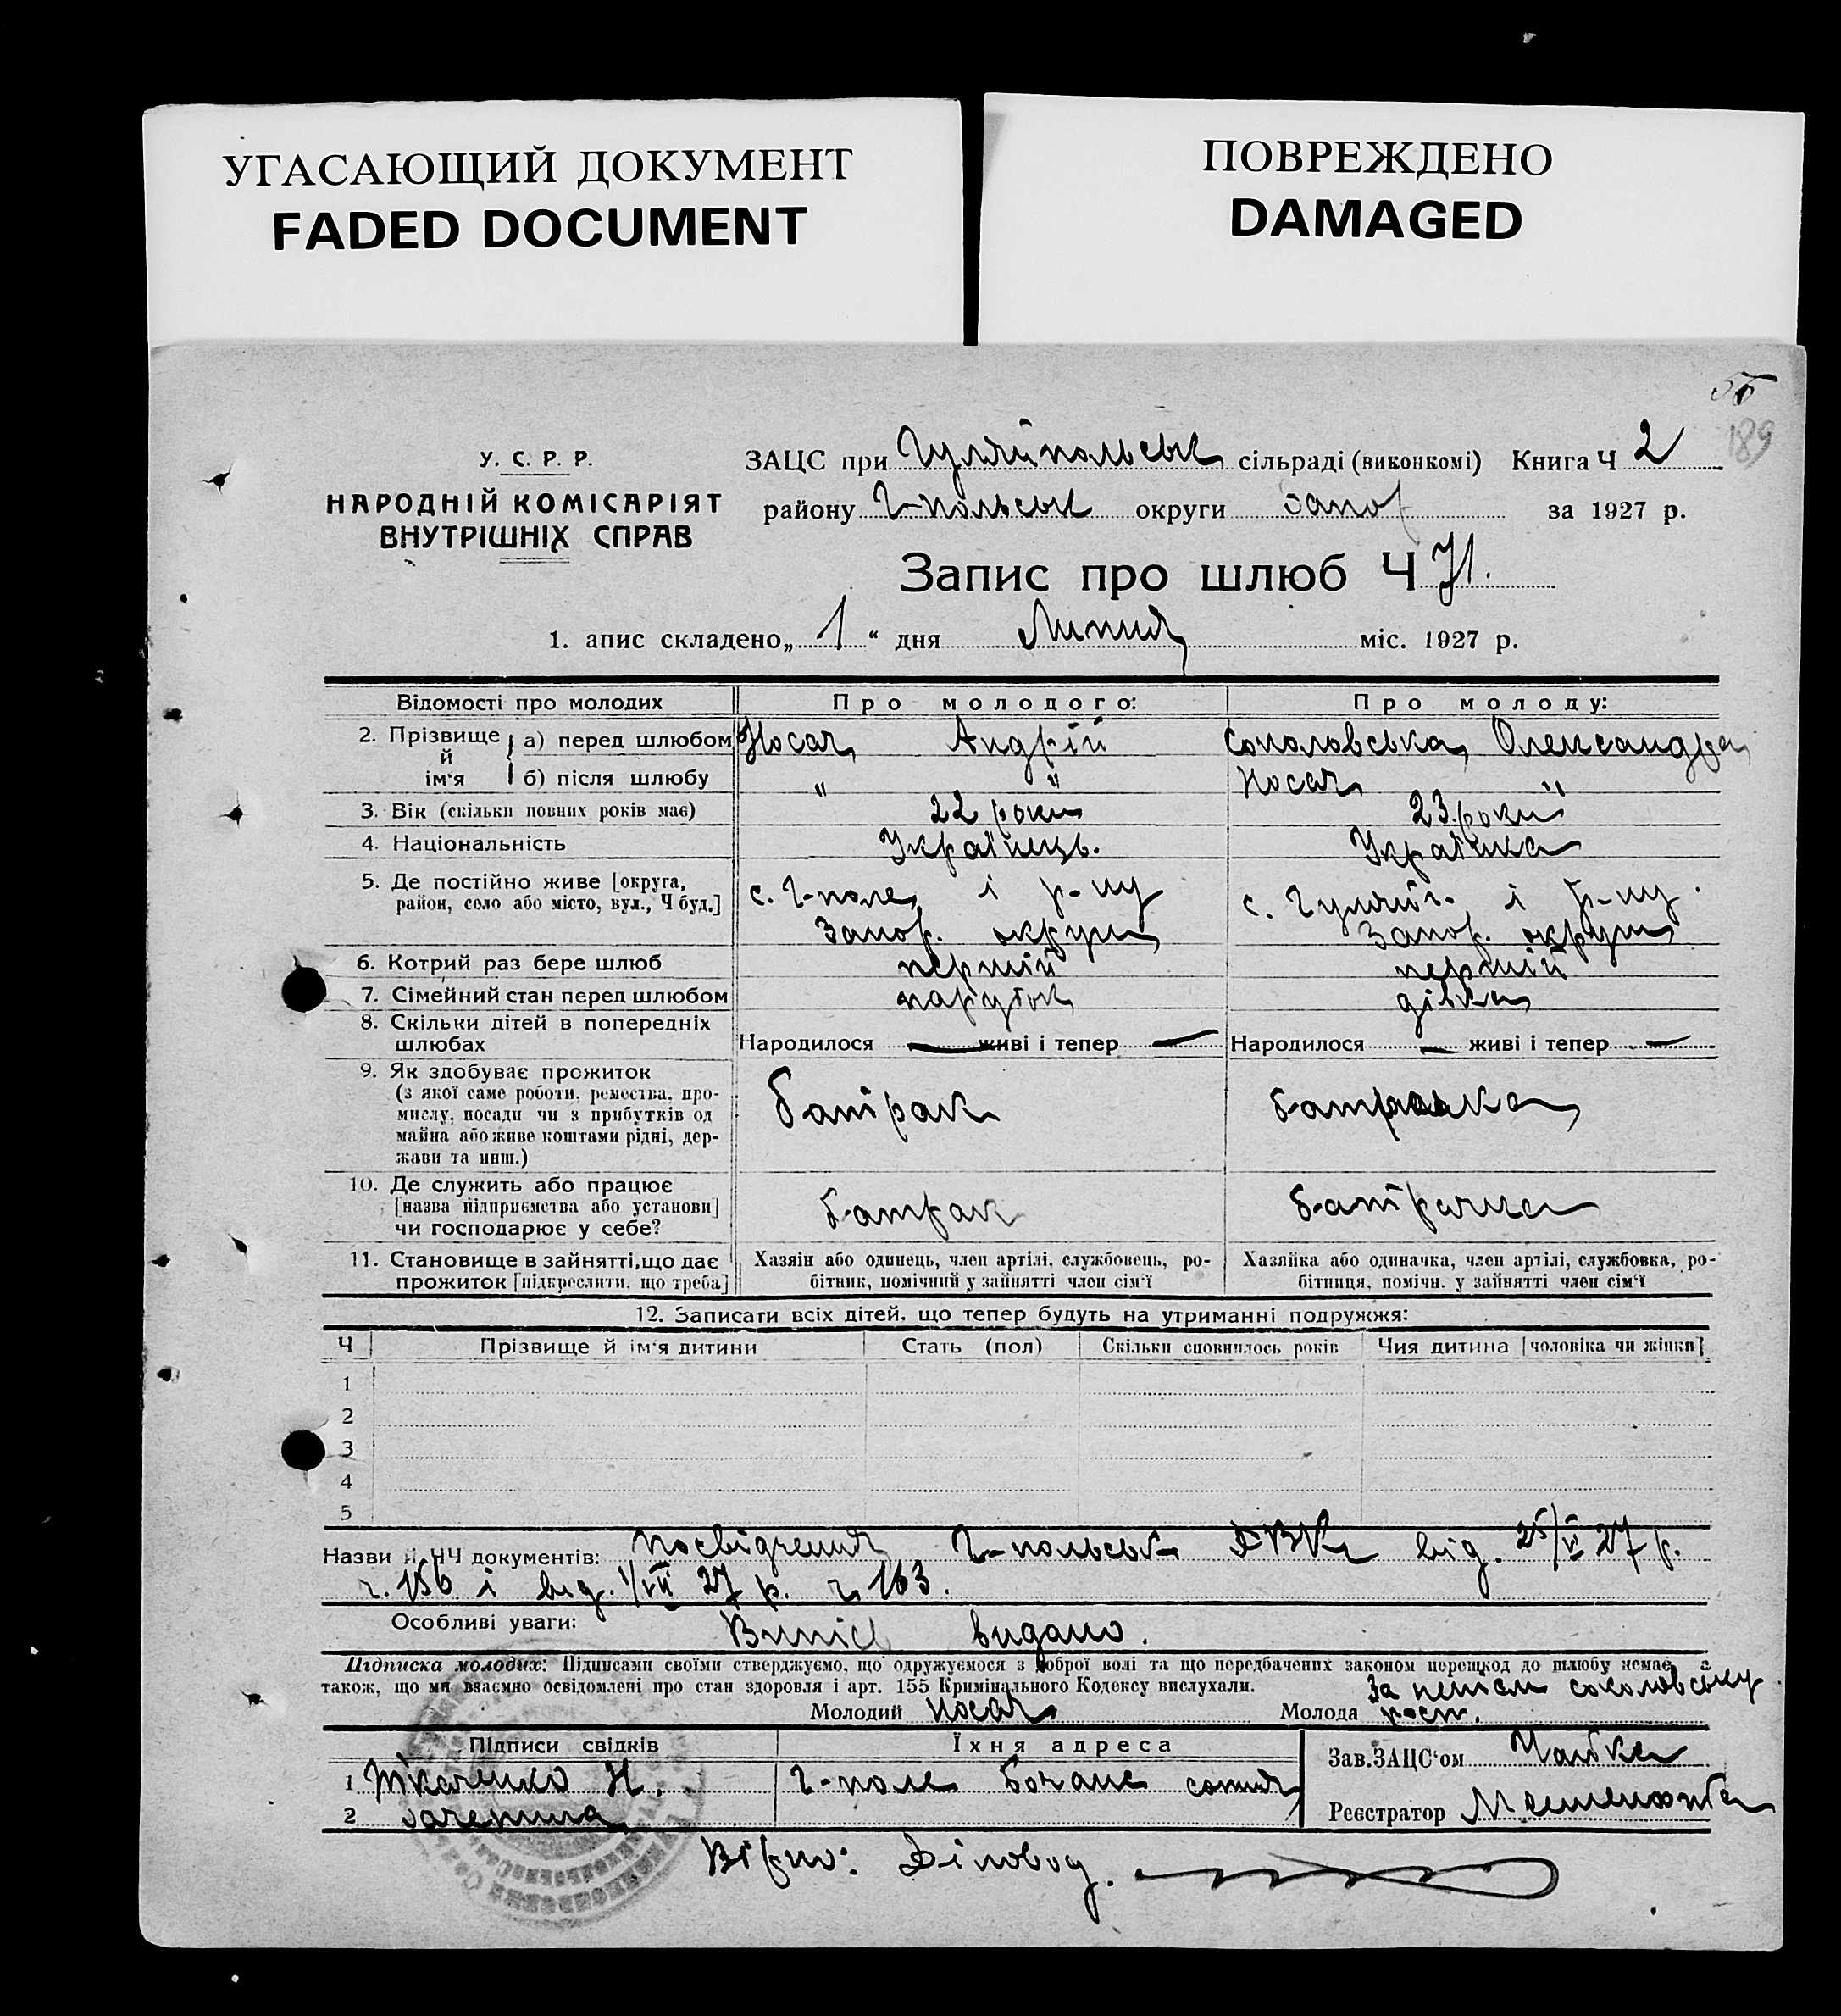 УГАСАЮЩИЙ ДОКУМЕНТ
FADED DOCUMENT
ПОВРЕЖДЕНО
DAMAGED
189
У. С. Р. Р.
НАРОДНІЙ КОМІСАРІЯТ
ВНУТРІШНІХ СПРАВ
ЗАЦС при Гуляйпольськ сільраді (виконкомі) Книга Ч 2
району Г-польськ округи Запор за 1927 р.
Запис про шлюб Ч 71.
1. апис складено „ 1 “ дня Липня міс. 1927 р.
Відомості про молодих Про молодого: Про молоду:
2. Прізвище й ім'я а) перед шлюбом Носач Андрій Соколовська Олександра
б) після шлюбу " " Носач "
3. Вік (скільки повних років має) 22 роки 23 роки
4. Національність Українець. Українка
5. Де постійно живе [округа, район, село або місто, вул., Ч буд.] с. Г-поле і р-ну Запор. округи с. Гуляйп. і р-ну Запор. округи
6. Котрий раз бере шлюб перший перший
7. Сімейний стан перед шлюбом парубок дівка
8. Скільки дітей в попередніх шлюбах Народилося — живі і тепер — Народилося — живі і тепер —
9. Як здобуває прожиток
(з якої саме роботи, ремества, про-
мислу, посади чи з прибутків од
майна або живе коштами рідні, дер-
жави та инш.) батрак батрачка
10. Де служить або працює
[назва підприємства або установи]
чи господарює у себе? батрак батрачка
11. Становище в зайнятті, що дає
прожиток [підкреслити, що треба]
Хазяїн або одинець, член артілі, службовець, ро-
бітник, помічний у зайнятті член сім'ї
Хазяйка або одиначка, член артілі, службовка, ро-
бітниця, помічн. у зайнятті член сім'ї
12. Записати всіх дітей, що тепер будуть на утриманні подружжя:
Ч Прізвище й ім'я дитини Стать (пол) Скільки сповнилось років Чия дитина [чоловіка чи жінки]
1
2
3
4
5
Назви й ЧЧ документів: посвідчення Г-польськ від. 25/VI 27 р.
ч. 156 і від. 1/VII 27 р. ч. 163.
Особливі уваги: Випис видано.
Підписка молодих: Підписами своїми стверджуємо, що одружуємося з доброї волі та що передбачених законом перешкод до шлюбу немає, а
також, що ми взаємно освідомлені про стан здоров'я і арт. 155 Кримінального Кодексу вислухали.
Молодий Носач Молода За непісм соколовську розп.
Підписи свідків Їхня адреса Зав. ЗАЦС'ом
1 Ткаченко Н. Г-поле сотня
2
Реєстратор
Вірно: Діловод.